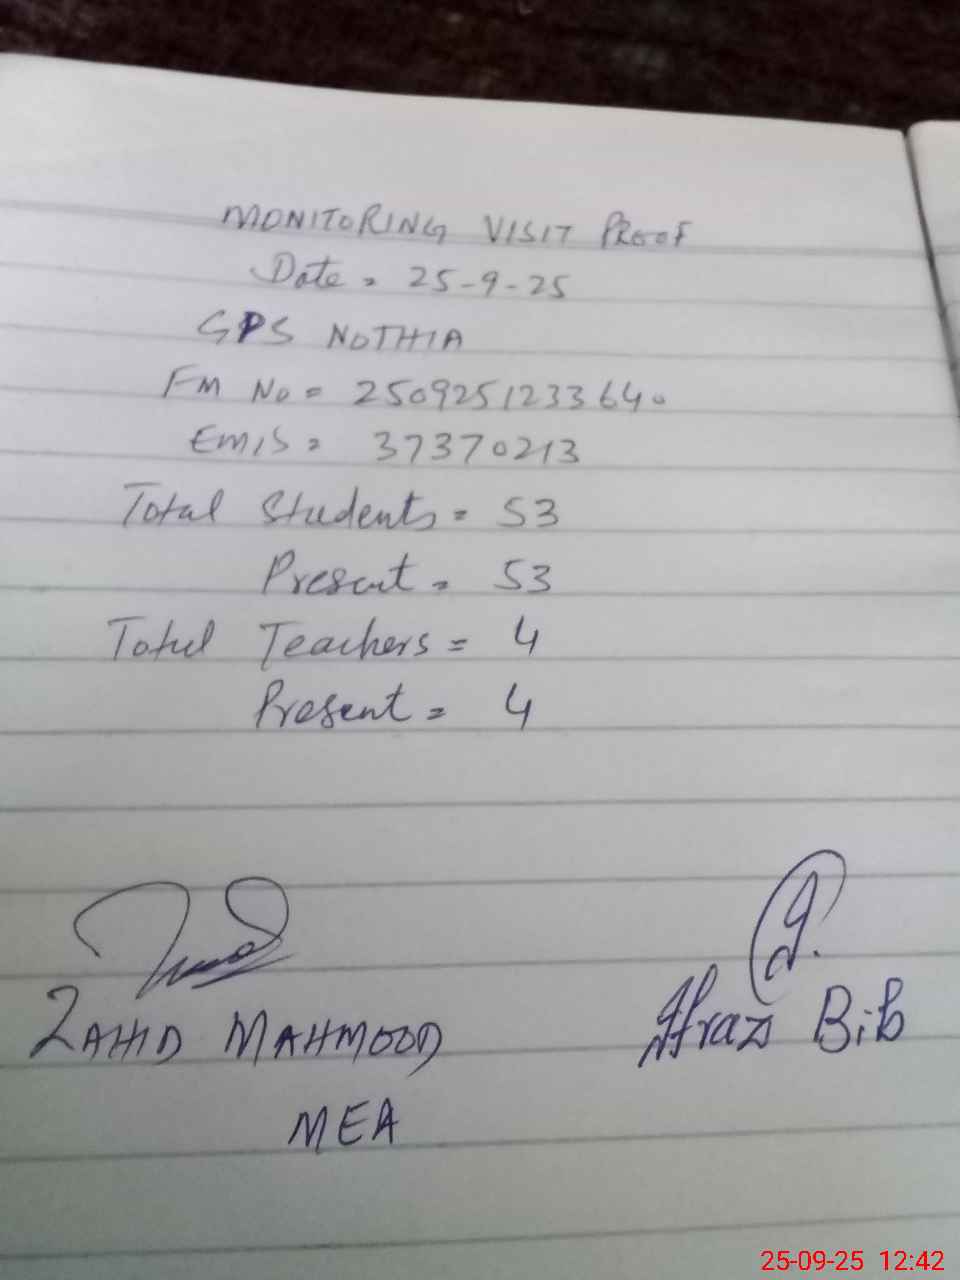 MONITORING VISIT PROOF
Date = 25-9-25
GPS NOTHIA
FM No = 2509251233640
EMIS = 37370213
Total Students = 53
Present = 53
Total Teachers = 4
Present = 4
ZAHID MAHMOOD
MEA
Bib
25-09-25 12:42